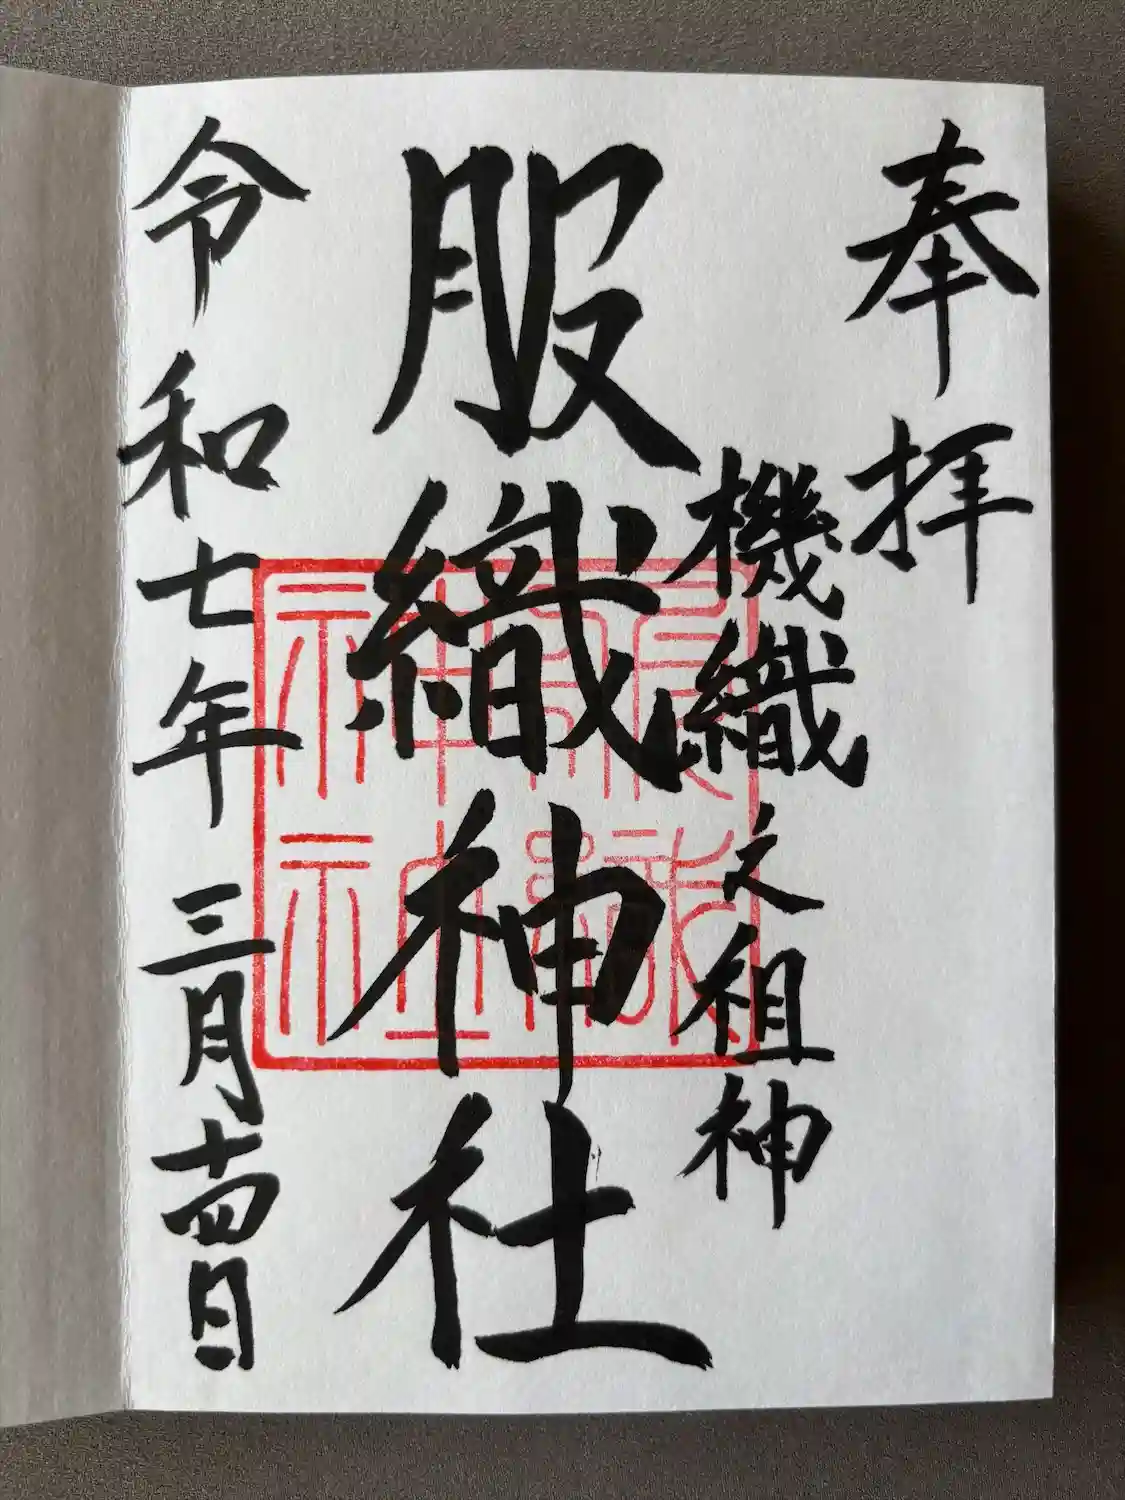 奉拝
機織之祖神
服織神社
令和七年三月十四日